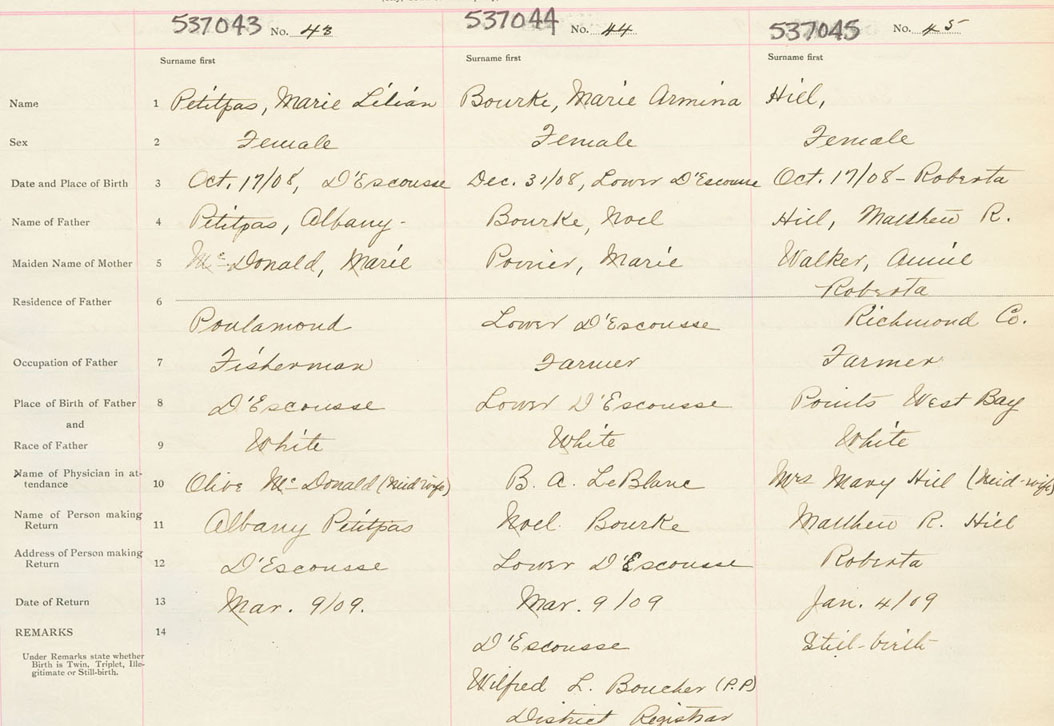 537043 No. 43 537044 No. 44 537045 No. 45
Surname first Surname first Surname first
Name 1 Petitpas, Marie Lilian Bourke, Marie Armina Hill,
Sex 2 Female Female Female
Date and Place of Birth 3 Oct. 17/08, D'Escousse Dec. 31/08, Lower D'Escousse Oct. 17/08 - Roberta
Name of Father 4 Petitpas, Albany - Bourke, Noel Hill, Matthew R.
Maiden Name of Mother 5 McDonald, Marie Poirier, Marie Walker, Annie
Residence of Father 6 Roberta
Poulamond Lower D'Escousse Richmond Co.
Occupation of Father 7 Fisherman Farmer Farmer
Place of Birth of Father 8 D'Escousse Lower D'Escousse Points West Bay
and
Race of Father 9 White White White
Name of Physician in at-
tendance 10 Olive McDonald (Mid wife) B. A. LeBlanc Mrs Mary Hill (Mid-wife)
Name of Person making
Return 11 Albany Petitpas Noel Bourke Matthew R. Hill
Address of Person making
Return 12 D'Escousse Lower D'Escousse Roberta
Date of Return 13 Mar. 9/09. Mar. 9/09 Jan. 4/09
REMARKS 14 D'Escousse Still-birth
Under Remarks state whether
Birth is Twin, Triplet, Ille-
gitimate or Still-birth.
Wilfred L. Boucher (P.P)
District Registrar